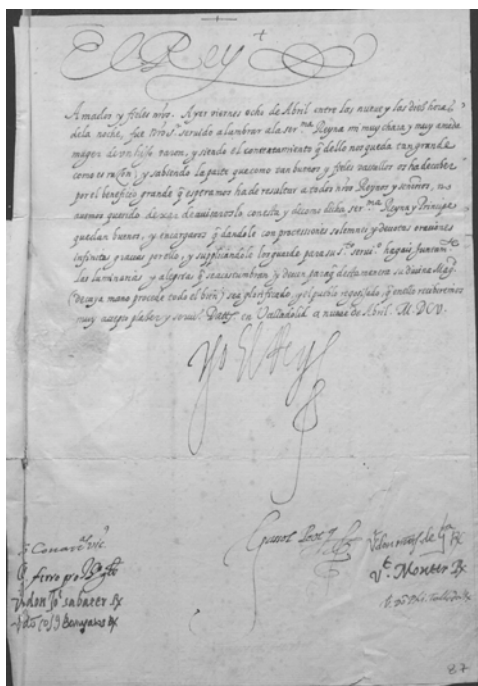 El Rey
Amados y fieles nr̃os. Ayer viernes ocho de Abril entre las nueve y las diez horas
dela noche, fue servido alumbrar ala ser.ma Reyna mi muy chara y muy amada
muger de un hijo varon, y siendo el contentamiento q̃ dello nos queda tan grande
como es razon, y sabiendo la parte que como tan buenos y fieles vassallos os ha decaber
por el beneficio grande q̃ esperamos ha de resultar a todos nr̃os Reynos y señorios, no
havemos querido dexar de avisaros lo con esta y deziros dicha ser.ma Reyna y Principe
quedan buenos, y encargaros q̃ dandole con processiones solemnes y devotas oraciones
infinitas gracias por ello, y supplicandole los guarde para su servi.o hagais juntam.te
las luminarias y alegrias q̃ se acustumbran y deven paraq̃ desta manera su divina Mag.d
(de cuya mano procede todo el bien) sea glorificado, y el pueblo regozijado, q̃ en ello recibiremos
muy accepto plazer y servi.o Datt. en Valladolid a nueve de Abril. M.DCV.
Yo El Rey
V. Monter Rx
V. don Jo. sabater Rx
87